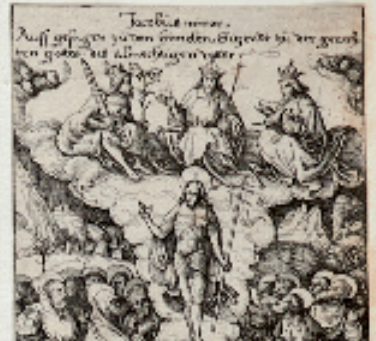 Jacobus minor.
Auff gestigen zu den zu der gerech
ten gottes des almechtigen vatter.